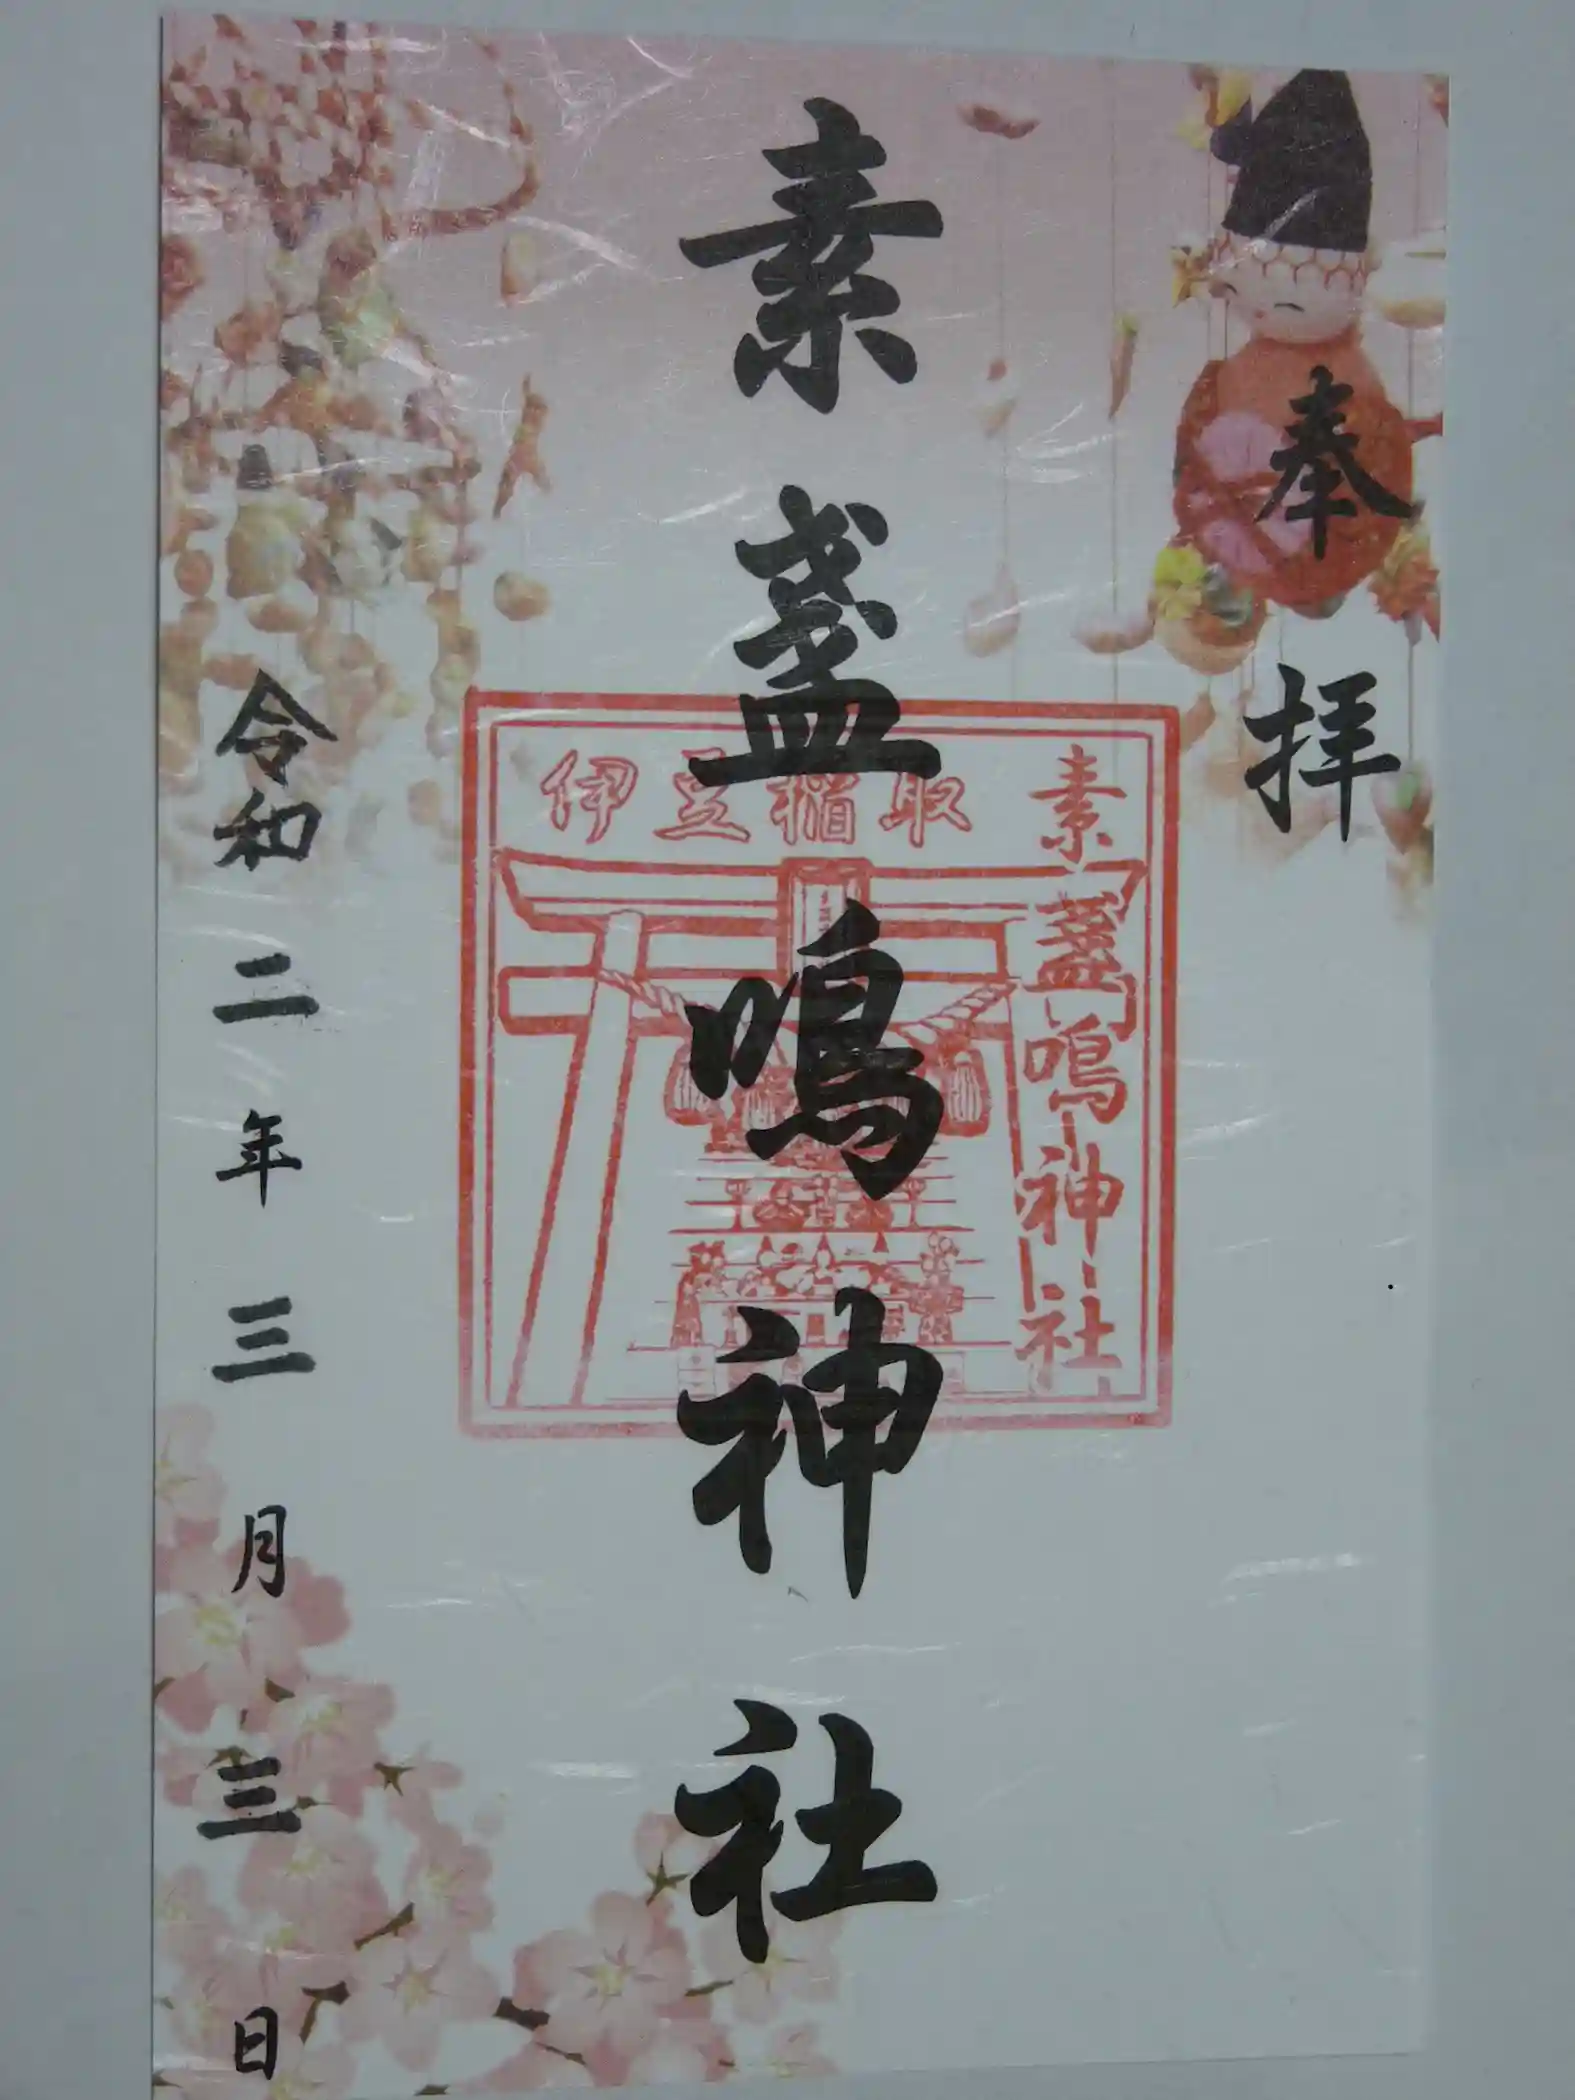 奉拝
素盞鳴神社
伊豆稲取
素盞鳴神社
令和二年三月三日